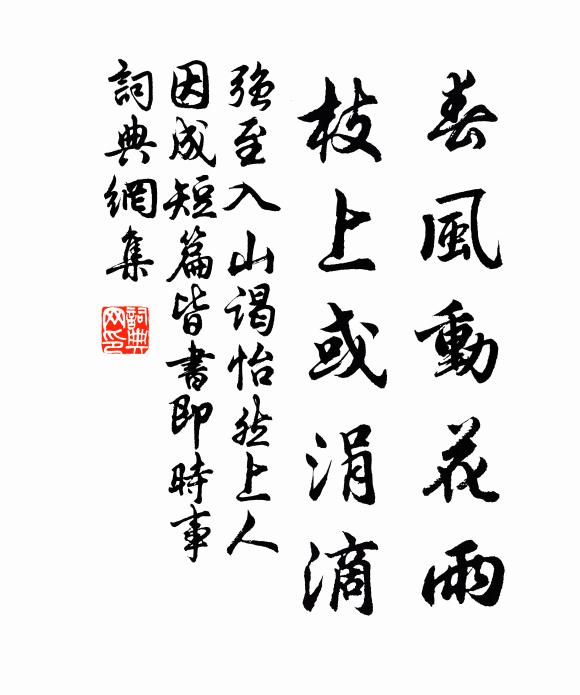 春風動花雨
枝上或涓滴
强至入山謁怡然上人
因成短篇皆書即時事
詞典網集
詞典网印